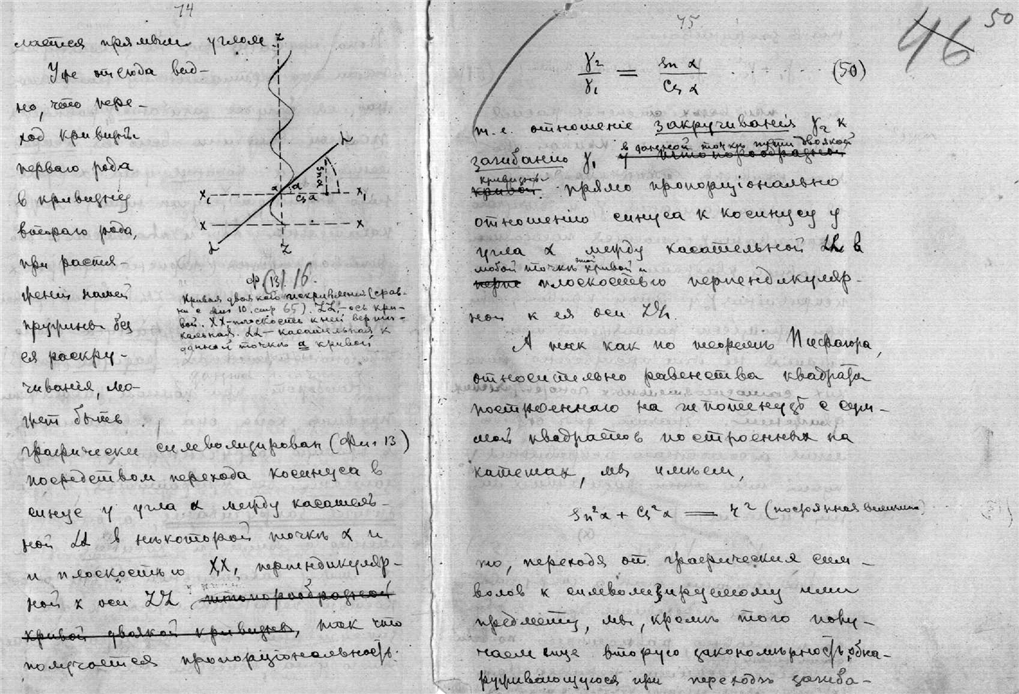 74
мается прямым углом
Уже отсюда вид-
но, что пере-
ход кривизны
перваго рода
в кривизну
втораго рода,
при растя-
жении нашей
пружины без
ея раскру-
чивания, мо-
жет быть
графически символизирован (Фиг 13)
посредством перехода косинуса в
синус у угла α между касатель-
ной LL в некоторой точкѣ α и
и плоскостью XX, перпендикуляр-
ной к оси ZZ штопорообразной
кривой двоякой кривизны, так что
получается пропорціональность.
Z
L
Sin α
α
α
X₁
Cs α
X₁
X
X
L
Z
Ф (13) 16.
Кривая двоякаго искривленія (срав-
ни с Фиг 10. стр 65). ZZ'-ось кри-
вой. XX-плоскость к ней верти-
кальная. LL- касательная к
данной точкѣ a кривой
75
46
50
γ₂/γ₁ = Sn α/Cs α (50)
т.е. отношеніе закручиванія γ₂ к
в данной точкѣ пути двоякой
загибанію γ₁ у штопорообразной
кривизны
кривой прямо пропорціонально
отношенію синуса к косинусу у
угла α между касательной LL в
любой точкѣ этой кривой и
плоскостью перпендикуляр-
ной к ея оси ZZ.
А так как по теоремѣ Пифагора,
относительно равенства квадрата
построеннаго на гипотенузѣ с сум-
мой квадратов построенных на
катетах, мы имѣем,
Sn²α + Cs²α = r² (постоянная величина)
то, переходя от графических сим-
волов к символизируемому ими
предмету, мы, кромѣ того полу-
чаем еще вторую закономѣрность, обна-
руживающуюся при переходѣ загиба-